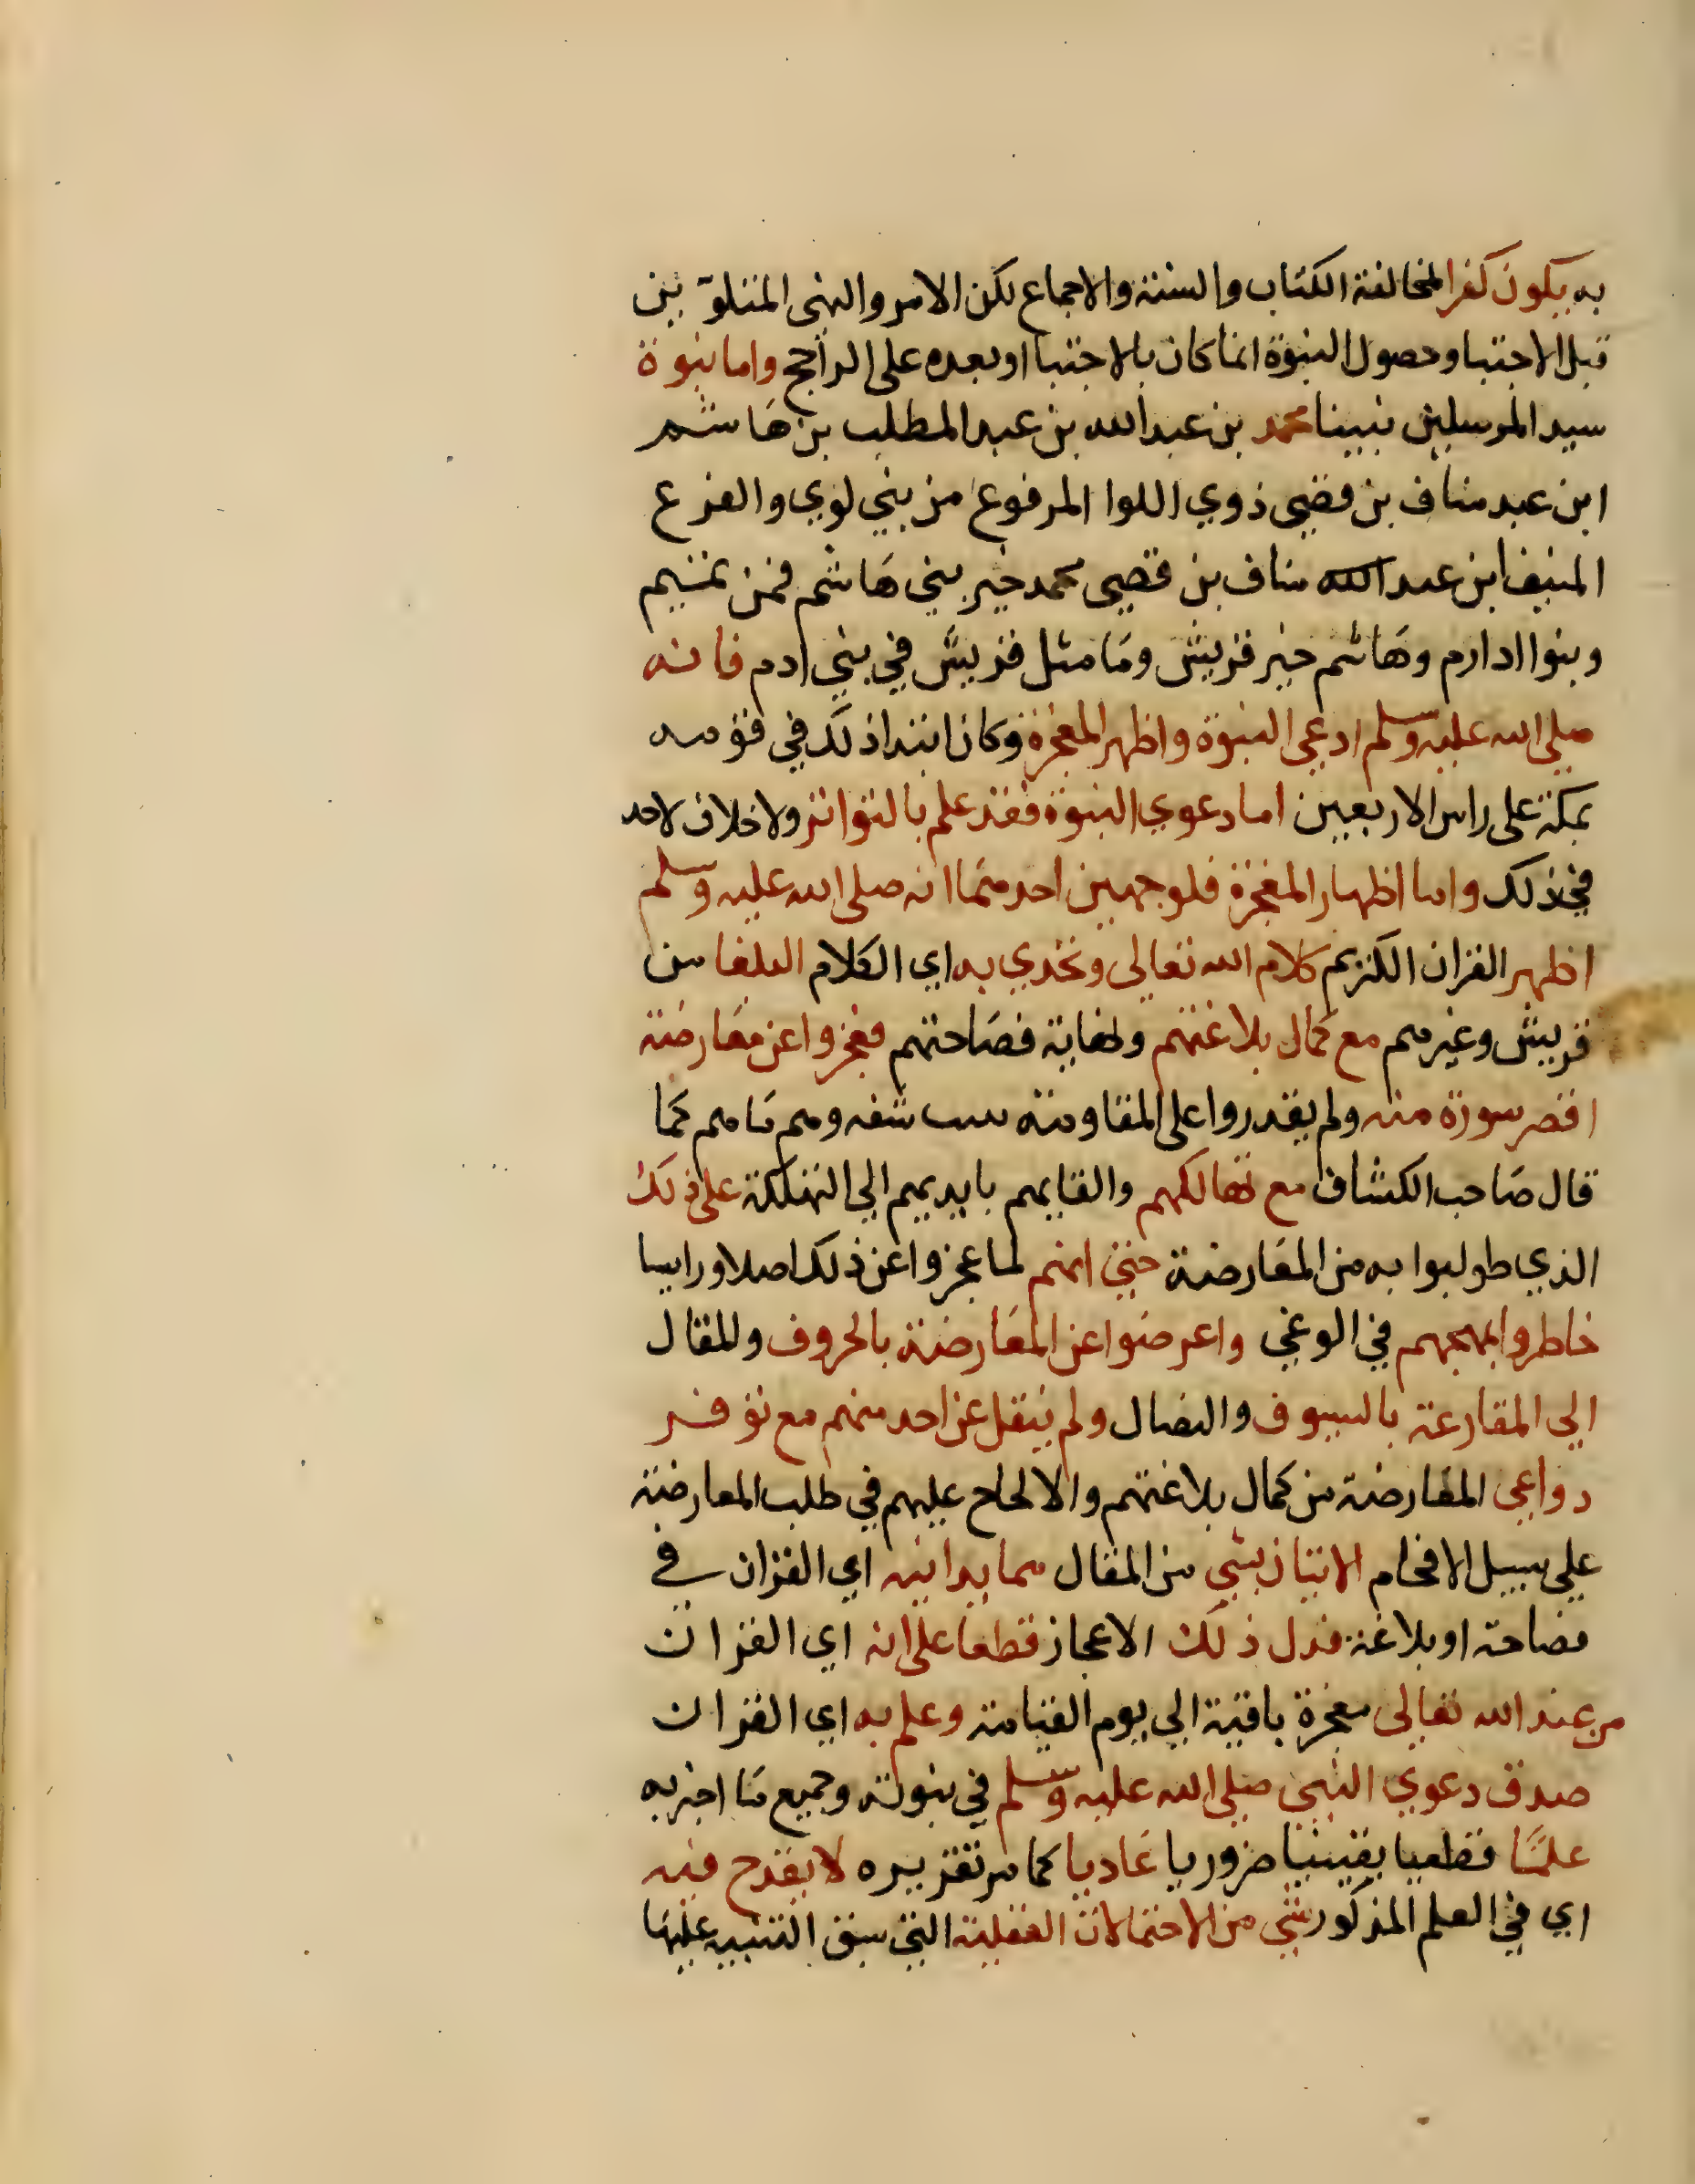 به يكون كفرا لمخالفة الكتاب والسنة والاجماع لكن الامر والنهى المتلوّين
قبل الاجتبا وحصول النبوة انما كان بالاجتبا او بعده على الراجح واما نبوة
سيد المرسلين نبينا محمد بن عبد الله بن عبد المطلب بن هاشم
ابن عبد مناف بن قصى ذوي اللوا المرفوع من بني لوي والفرع
المنيف ابن عبد الله مناف بن قصي محمد خير بني هاشم فمن تميم
وبنوا دارم وهاشم خير قريش وما مثل قريش في بني ادم فانه
صلى الله عليه وسلم ادعى النبوة واظهر المعجزة وكان ابتدا ذلك في قومه
بمكة على راس الاربعين اما دعوي النبوة فقد علم بالتواتر ولا خلاف لاحد
في ذلك واما اظهار المعجزة فلوجهين احدهما انه صلى الله عليه وسلم
اظهر القران الكريم كلام الله تعالى وتحدي به اي الكلام البلغا من
قريش وغيرهم مع كمال بلاغتهم ولغاية فصاحتهم فعجزوا عن معارضة
اقصر سورة منه ولم يقدروا على المقاومة ببنت شفه وهم ما هم كما
قال صاحب الكشاف مع تهالكهم والقايهم بايديهم الي التهلكة على ذلك
الذي طولبوا به من المعارضة حتى انهم لما عجزوا عن ذلك اصلا وراسا
خاطروا بمهجهم في الوغي واعرضوا عن المعارضة بالحروف وللمقال
الي المقارعة بالسيوف والنضال ولم ينقل عن احد منهم مع توفر
دواعي المعارضة من كمال بلاغتهم والالحاح عليهم في طلب المعارضة
علي سبيل الافحام الاتيان بشي من المقال مما يدانيه اي القران في
فصاحته او بلاغة فدل ذلك الاعجاز قطعا على انه اي القران
من عند الله تعالى معجزة باقية الي يوم القيامة وعلم به اي القران
صدق دعوي النبي صلى الله عليه وسلم في نبوته وجميع ما اخبر به
علمًا قطعيا يقينيا ضروريا عاديا كما مر تقريره لا يقدح فيه
اي في العلم المذكور شي من الاحتمالات العقلية التي سبق التنبيه عليها